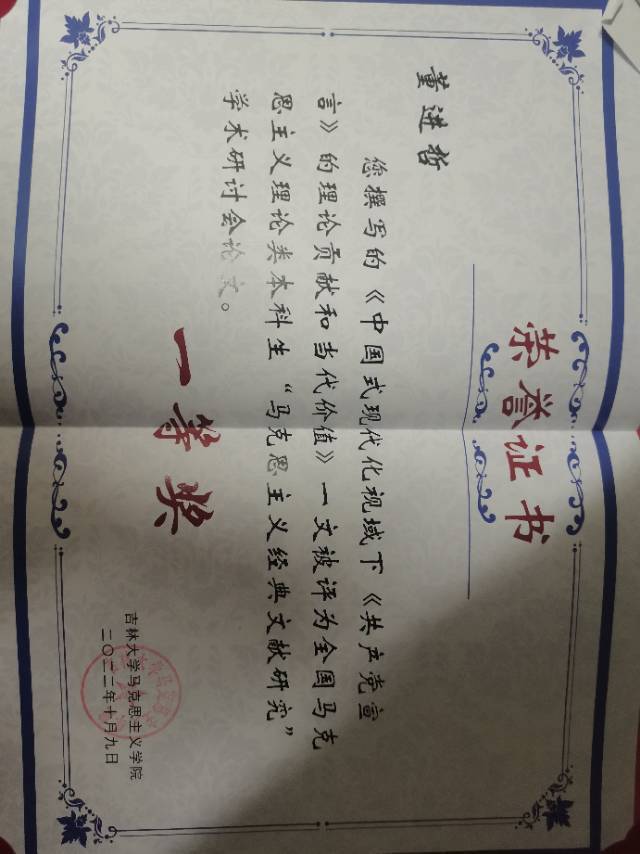 荣誉证书
董进哲
您撰写的《中国式现代化视域下《共产党宣
言》的理论贡献和当代价值》一文被评为全国马克
思主义理论类本科生“马克思主义经典文献研究”
学术研讨会论文。
一等奖
吉林大学马克思主义学院
二〇二二年十月九日